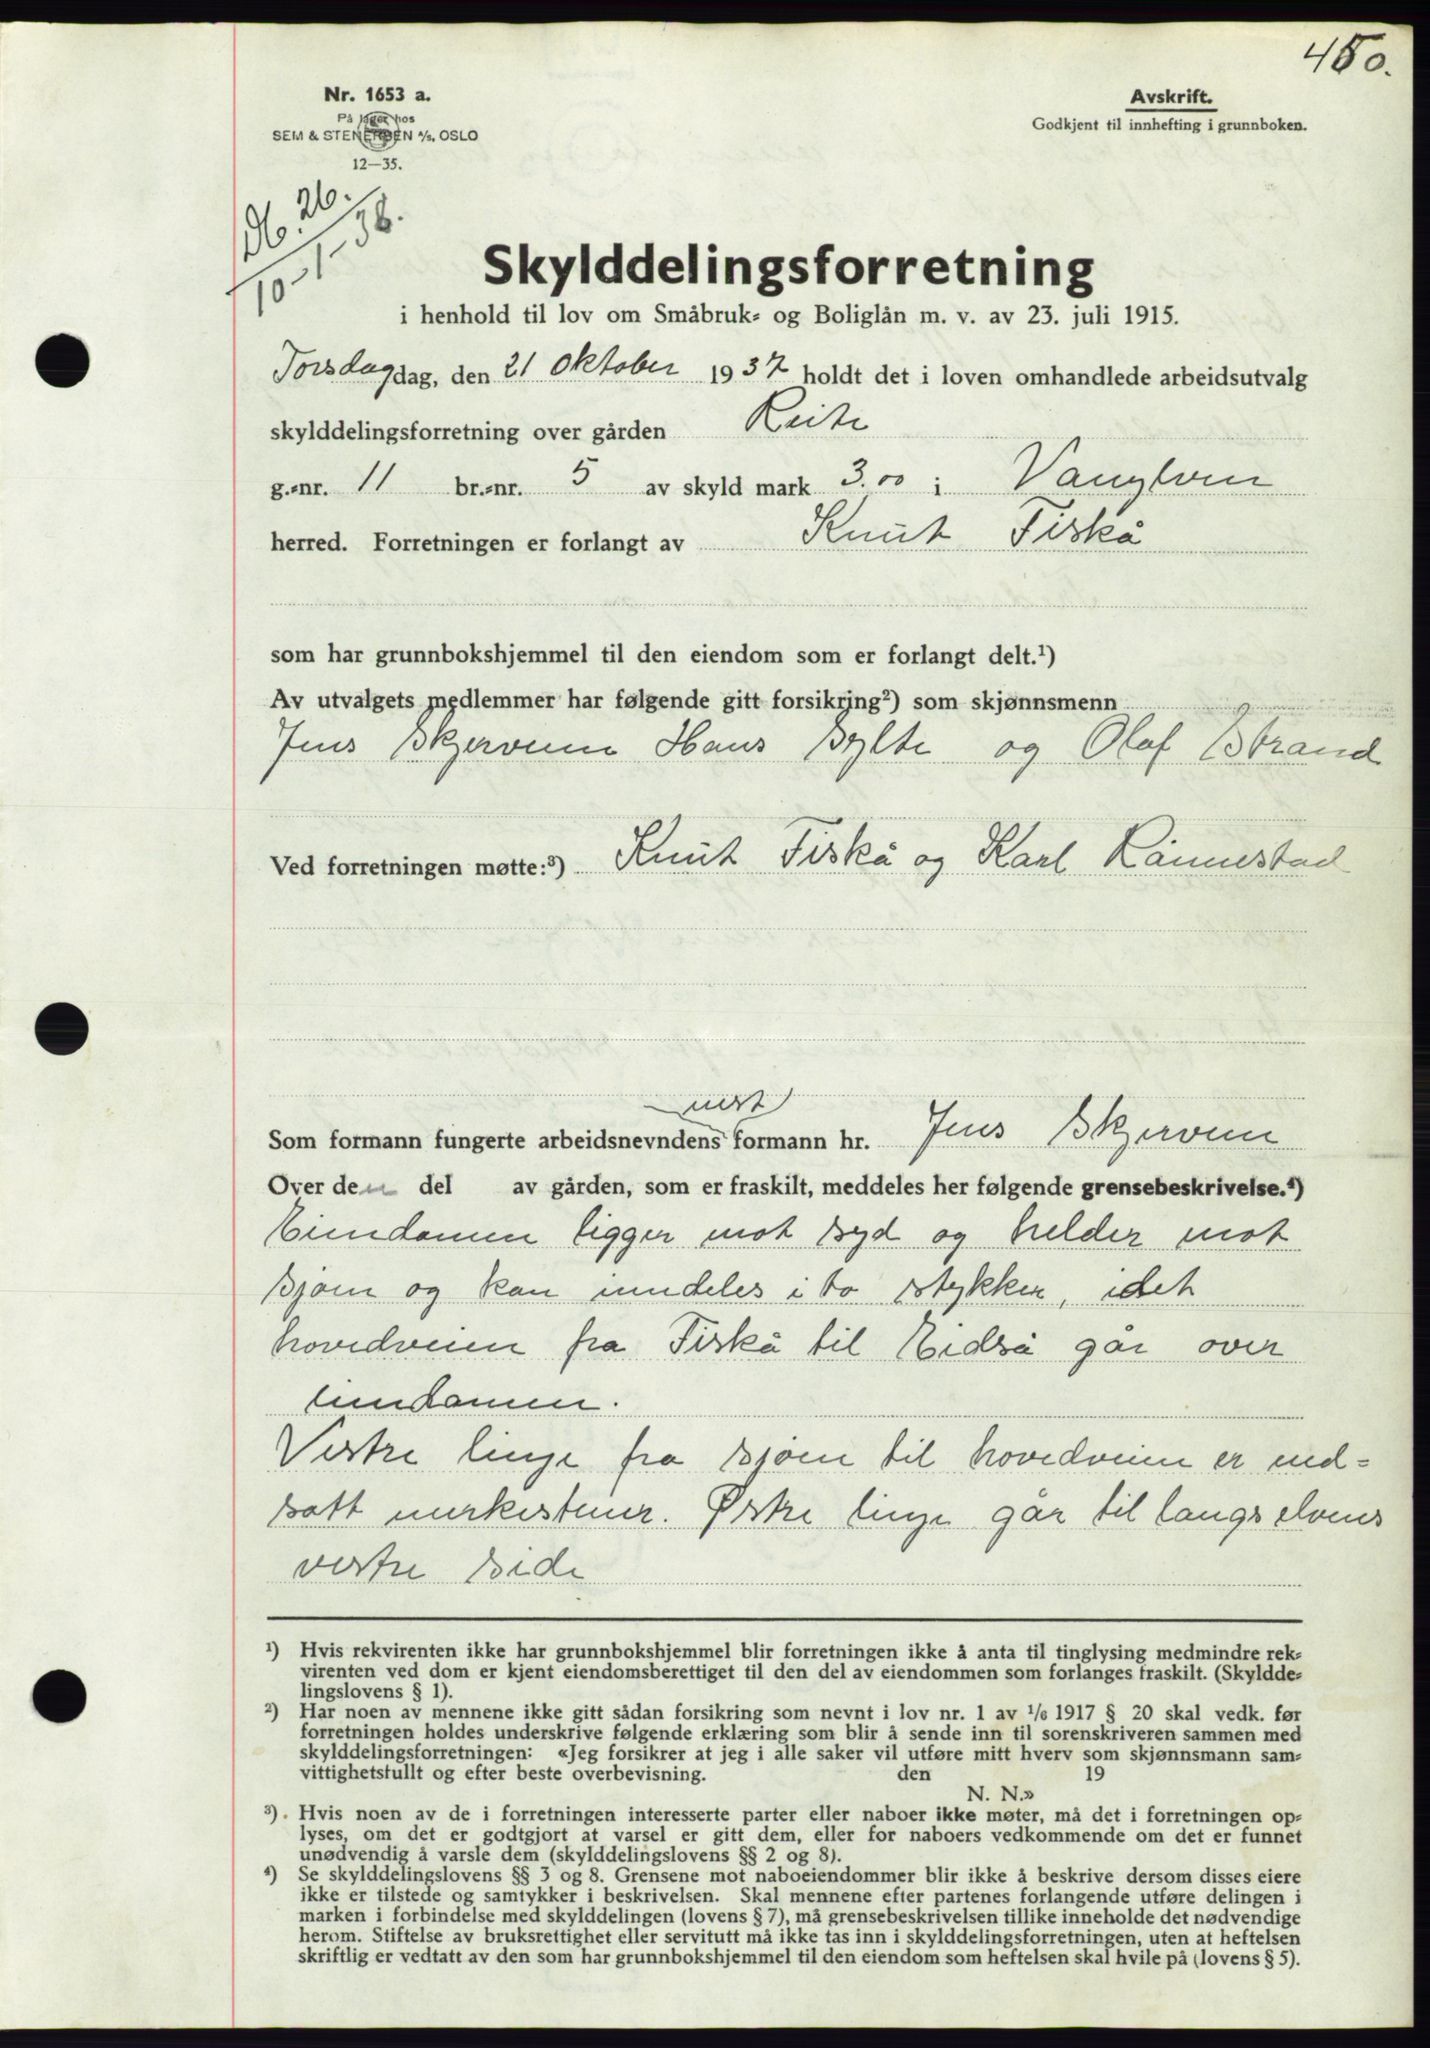 450.
Nr. 1653 a.
På lager hos
SEM & STENERSEN A/S, OSLO
12—35.
Avskrift.
Godkjent til innhefting i grunnboken.
Db. 26.
10-1-38.
Skylddelingsforretning
i henhold til lov om Småbruk- og Boliglån m. v. av 23. juli 1915.
Torsdag dag, den 21 Oktober 1937 holdt det i loven omhandlede arbeidsutvalg
skylddelingsforretning over gården Reite
g.-nr. 11 br.-nr. 5 av skyld mark 3.00 i Vanylven
herred. Forretningen er forlangt av Knut Fiskå
som har grunnbokshjemmel til den eiendom som er forlangt delt.¹)
Av utvalgets medlemmer har følgende gitt forsikring²) som skjønnsmenn
Jens Skjerven Hans Sylte og Olaf Strand
Ved forretningen møtte:³) Knut Fiskå og Karl Rånnestad
nest
Som formann fungerte arbeidsnevndens formann hr. Jens Skjerven
Over den del av gården, som er fraskilt, meddeles her følgende grensebeskrivelse.⁴)
Eiendomen ligger mot syd og helder mot
sjøen og kan inndeles i to stykker, idet
hovedveien fra Fiskå til Eidså går over
eiendomen.
Vestre linje fra sjøen til hovedveien er ned-
satt merkestener. Østre linje går til langs elvens
vestre side
¹) Hvis rekvirenten ikke har grunnbokshjemmel blir forretningen ikke å anta til tinglysing medmindre rek-
virenten ved dom er kjent eiendomsberettiget til den del av eiendommen som forlanges fraskilt. (Skyldde-
lingslovens § 1).
²) Har noen av mennene ikke gitt sådan forsikring som nevnt i lov nr. 1 av 1/6 1917 § 20 skal vedk. før
forretningen holdes underskrive følgende erklæring som blir å sende inn til sorenskriveren sammen med
skylddelingsforretningen: «Jeg forsikrer at jeg i alle saker vil utføre mitt hverv som skjønnsmann sam-
vittighetsfullt og efter beste overbevisning. den 19
N. N.»
³). Hvis noen av de i forretningen interesserte parter eller naboer ikke møter, må det i forretningen op-
lyses, om det er godtgjort at varsel er gitt dem, eller for naboers vedkommende om det er funnet
unødvendig å varsle dem (skylddelingslovens §§ 2 og 8).
⁴) Se skylddelingslovens §§ 3 og 8. Grensene mot naboeiendommer blir ikke å beskrive dersom disses eiere
ikke er tilstede og samtykker i beskrivelsen. Skal mennene efter partenes forlangende utføre delingen i
marken i forbindelse med skylddelingen (lovens § 7), må grensebeskrivelsen tillike inneholde det nødvendige
herom. Stiftelse av bruksrettighet eller servitutt må ikke tas inn i skylddelingsforretningen, uten at heftelsen
skriftlig er vedtatt av den som har grunnbokshjemmel til den eiendom som heftelsen skal hvile på (lovens § 5).